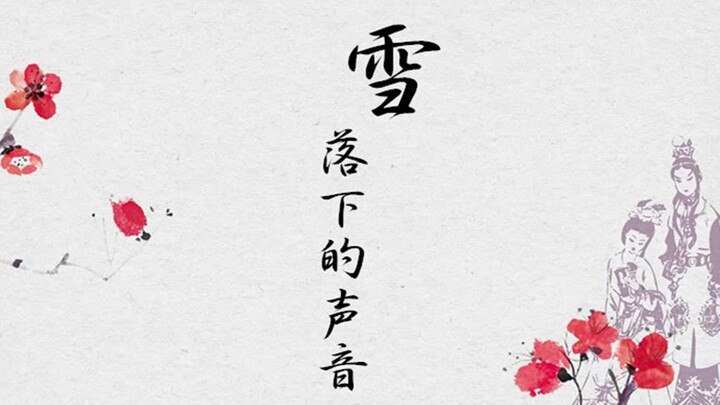 雪
落下的声音